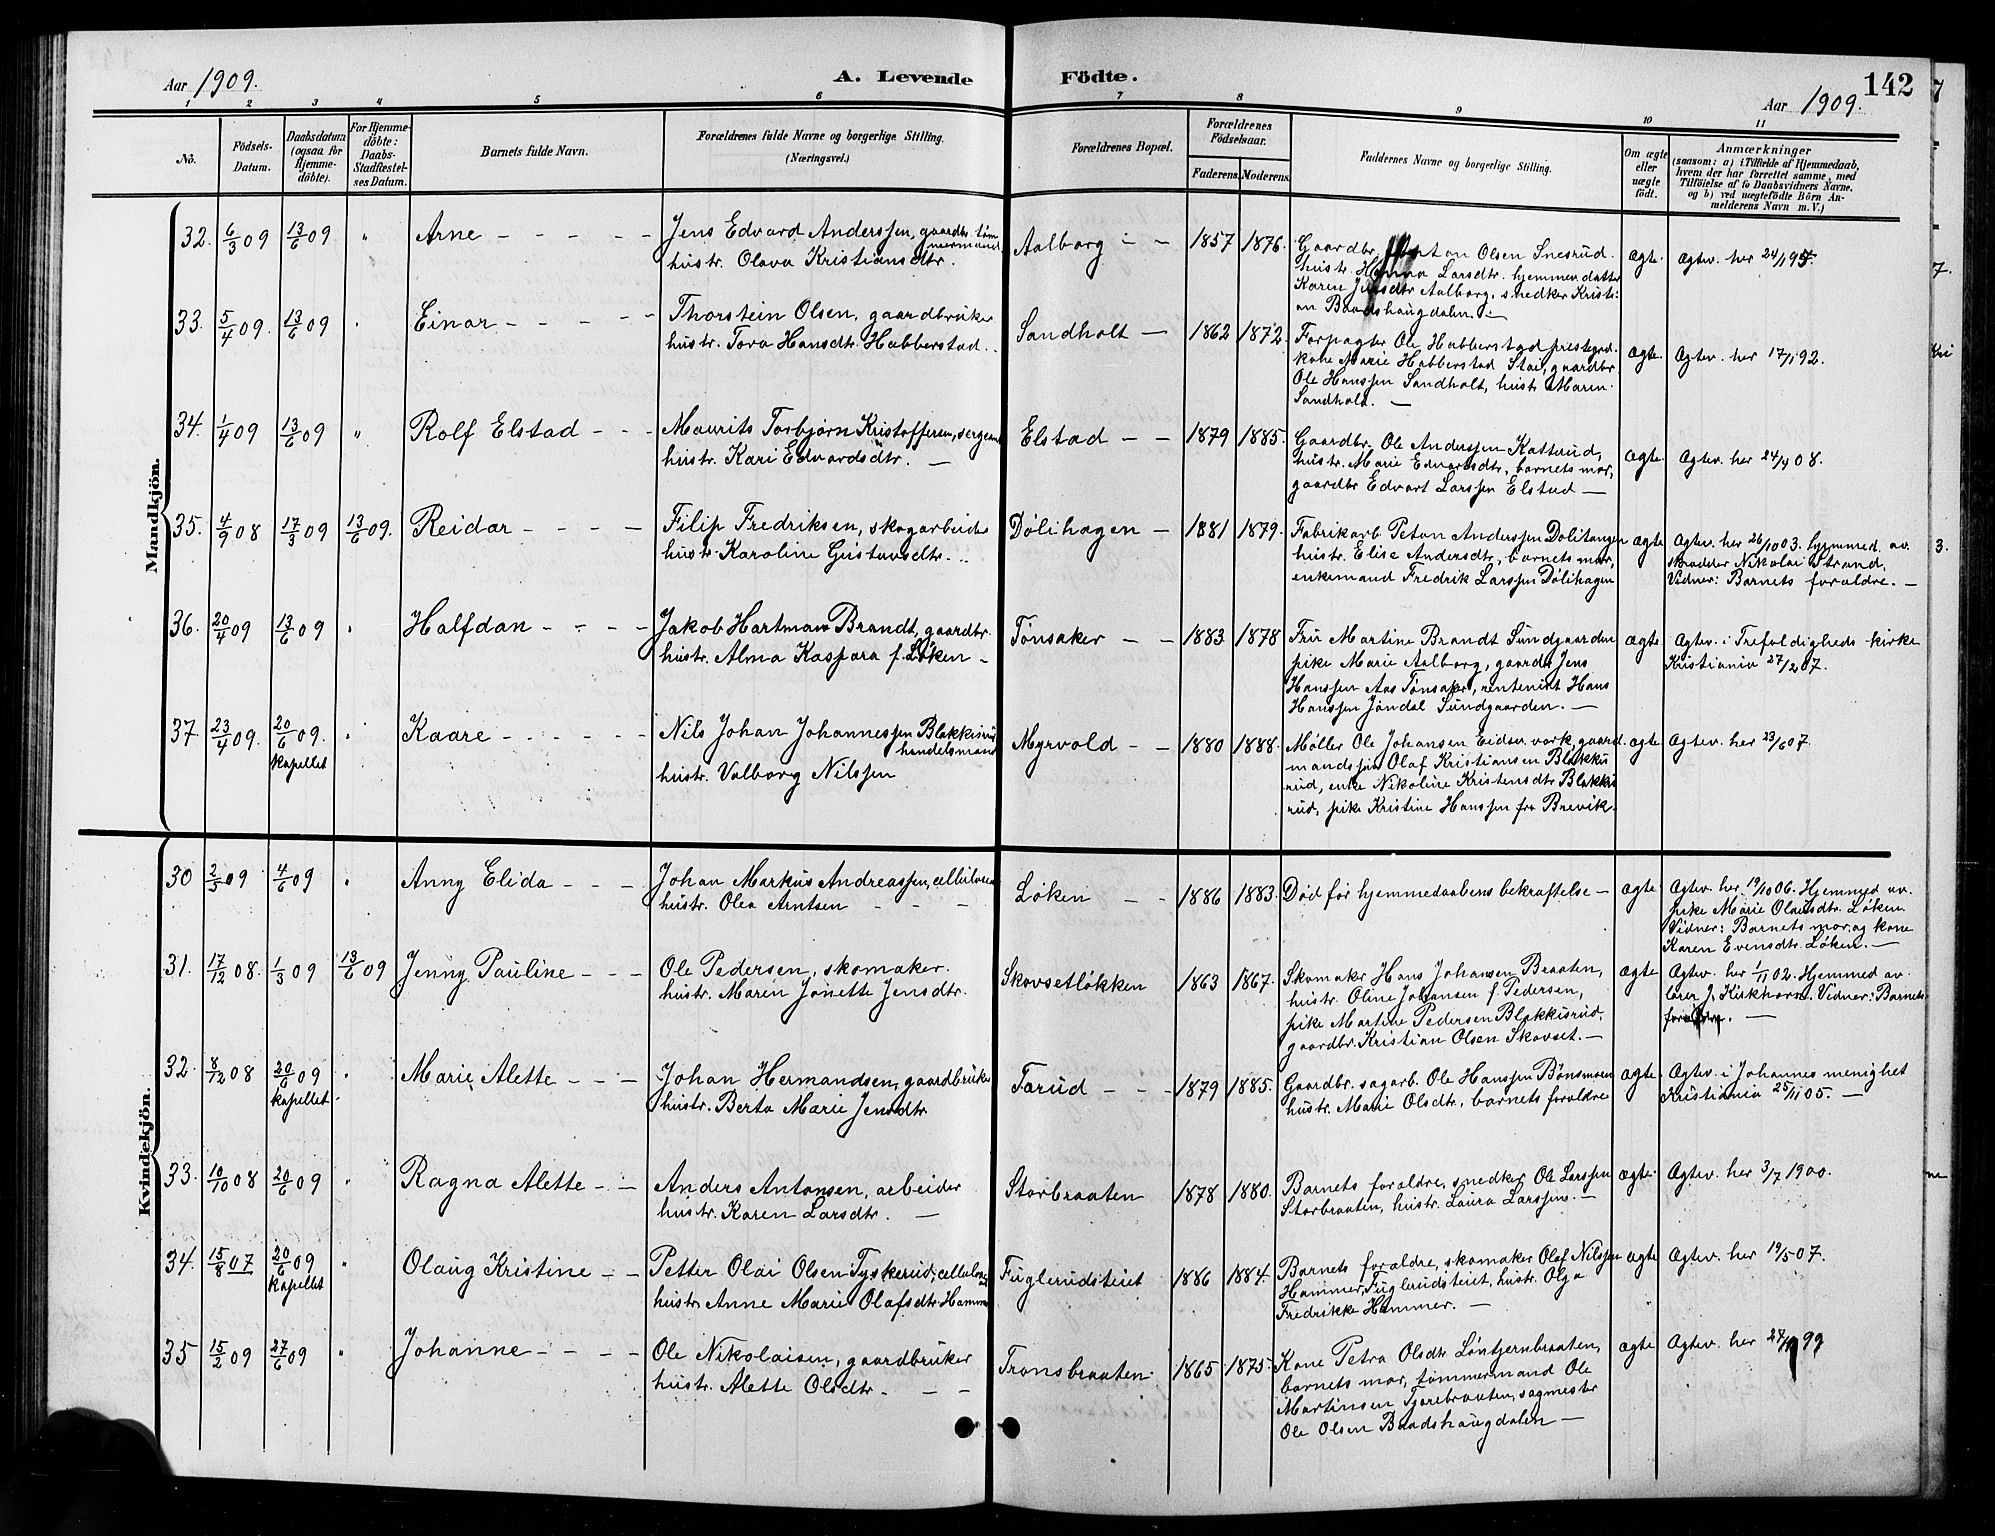 Aar 1909.
A. Levende Födte.
142
Aar 1909.
1 2 3 4 5 6 7 8 9 10 11
No.
Födsels-Datum.
Daabsdatum (ogsaa for Hjemme-döbte).
For Hjemme-döbte: Daabs-Stadfestel-ses Datum.
Barnets fulde Navn.
Forældrenes fulde Navne og borgerlige Stilling.
(Næringsvei.)
Forældrenes Bopæl.
Forældrenes Födselsaar.
Faderens. Moderens.
Faddernes Navne og borgerlige Stilling.
Om ægte eller uægte födt.
Anmærkninger
(saasom: a) i Tilfælde af Hjemmedaab,
hvem der har forrettet samme, med
Tilföielse af to Daabsvidners Navne,
og b) ved uægtefödte Börn An-
melderens Navn m. V.)
Mandkjön.
32. 6/3 09 13/6 09 " Arne - - - - -
Jens Edvard Anderssen, gaardbr. töm
mermand
hustr. Olava Kristiansdtr.
Aalborg - - 1857 1876.
Gaardbr. Anton Olsen Snesrud.
hustr. Hanna Larsdtr. hjemmev. datter
Karen Jensdtr Aalborg, snedker Kristi-
an Baadshaugdalen. -
Ægte. Ægtev. her
33. 5/4 09. 13/6 09 " Einar - - - - -
Thorstein Olsen, gaardbruker
hustr. Tora Hansdtr. Habberstad.
Sandholt - 1862 1872.
Forpagter Ole Habberstad prestegrd.
kone Marie Habberstad Stai, gaardbr
Ole Hanssen Sandholt, hustr. Maren
Sandhold. -
Ægte. Ægtev. her 17/1 92.
34. 1/4 09 13/6 09 " Rolf Elstad - - -
Maurits Torbjørn Kristoffersen, sergeant
hustr. Kari Edvardsdtr. -
Elstad - - 1879 1885.
Gaardbr. Ole Anderssen Katterud,
hustr. Marie Edvardsdtr, barnets mor,
gaardbr Edvart Larssen Elstad -
Ægte. Ægtev. her 24/4 08.
35. 4/9 08 17/3 09 13/6 09. Reidar - - - -
Filip Fredriksen, skogarbeider
hustr. Karoline Gustavsdtr. -
Dølihagen - 1881 1879.
Fabrikarb Peton Anderssen Dolitangen
hustr. Elise Andersdtr, barnets mor,
enkemand Fredrik Larssen Dølihagen
Ægte Ægtev. her 26/10 03. hjemmed. av
skrædder Nikolai Strand.
Vidner: Barnets forældre. -
36. 20/4 09 13/6 09 " Halfdan - - - -
Jakob Hartman Brandt, gaardbr.
hustr. Alma Kaspara f. Løken -
Tønsaker - - 1883 1878
Fru Martine Brandt Sundgaarden
pike Marie Aalborg, gaardb Jens
Hanssen Aas Tønsaker, rentenist Hans
Hanssen Jøndal Sundgaarden. -
Ægte Ægtev. i Trefoldigheds kirke
Kristiania 27/2 07.
37. 23/4 09. 20/6 09. kapellet " Kaare - - - - -
Nils Johan Johannessen Blakkisrud
handelsmand
hustr. Valborg Nilssen
Myrvold - - 1880 1888.
Møller Ole Johansen Eidsv. værk, gaard-
mandssøn Olaf Kristiansen Blakkis
rud, enke Nikoline Kristensdtr Blakkis
rud, pike Kristine Hanssen fra Brevik.
Ægte Ægtev. her 23/6 07.
Kvindekjön.
30 09 4/6 09 " Anny Elida - - -
Johan Markus Andreassen,
hustr. Olea Arntsen - - -
Løken - - 1886 1883.
Død før hjemmedaabens bekræftelse -
Ægte. Ægtev. her 19/10 06. Hjemmed av.
pike Marie Olausdtr. Løken
Vidner: Barnets mor og kone
Karen Evensdtr. Løken. -
31. 17/12 08. 1/3 09 13/6 09 Jenny Pauline - - -
Ole Pedersen, skomaker.
hustr. Maren Jonette Jensdtr.
Skovsetløkken 1863 1867.
Skomaker Hans Johansen Braaten,
hustr. Oline Johansen f. Pedersen,
pike Martine Pedersen Blakkisrud,
gaardbr. Kristian Olsen Skovset. -
Ægte Ægtev. her 1/11 02. Hjemmed av.
lærer J. Kirkhorn. Vidner: Barnets
forældre. -
32. 8/12 08 20/6 09 kapellet " Marie Alette - - -
Johan Hermandsen, gaardbruker
hustr. Berta Marie Jensdtr
Tarud - - - 1879 1885.
Gaardbr. sagarb. Ole Hanssen Bønsmoen
hustr. Marie Olsdtr, barnets forældre
Ægte. Ægtev. i Johannes menighet
Kristiania 25/11 05. -
33. 10/10 08 20/6 09 " Ragna Alette - -
Anders Antonsen, arbeider
hustr. Karen Larsdtr. -
Storbraaten 1878 1880.
Barnets forældre, snedker Ole Larssen
Storbraaten, hustr. Laura Larssen. -
Ægte. Ægtev. her 3/7 1900.
34. 15/8 07 20/6 09 kapellet " Olaug Kristine - -
Petter Olai Olsen Tyskerud,
hustr. Anne Marie Olafsdtr. Hammer
Fuglerudsteiet 1886 1884.
Barnets forældre, skomaker Olaf Nilssen
Hammer, Fuglerudsteiet, hustr. Olga
Fredrikke Hammer. -
Ægte Ægtev. her 19/5 07.
35 15/2 09 27/6 09 " Johanne - - - -
Ole Nikolaisen, gaardbruker
hustr. Alette Olsdtr. - - -
Transbraaten. 1865 1875.
Kone Petra Olsdtr Løntjernbraaten,
barnets mor, tømmermand Ole
Martinsen Tjærebraaten, sagmester
Ole Olsen Baadshaugdalen -
Ægte Ægtev. her